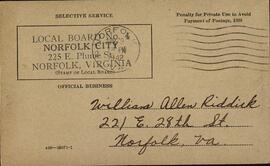 SELECTIVE SERVICE
Penalty for Private Use to Avoid
Payment of Postage, $300
LOCAL BOARD No.
NORFOLK CITY
225 E. Plume St.
NORFOLK, VIRGINIA
(STAMP OF LOCAL BOARD)
OFFICIAL BUSINESS
William Allen Riddick
221 E. 28th St.
Norfolk, Va.